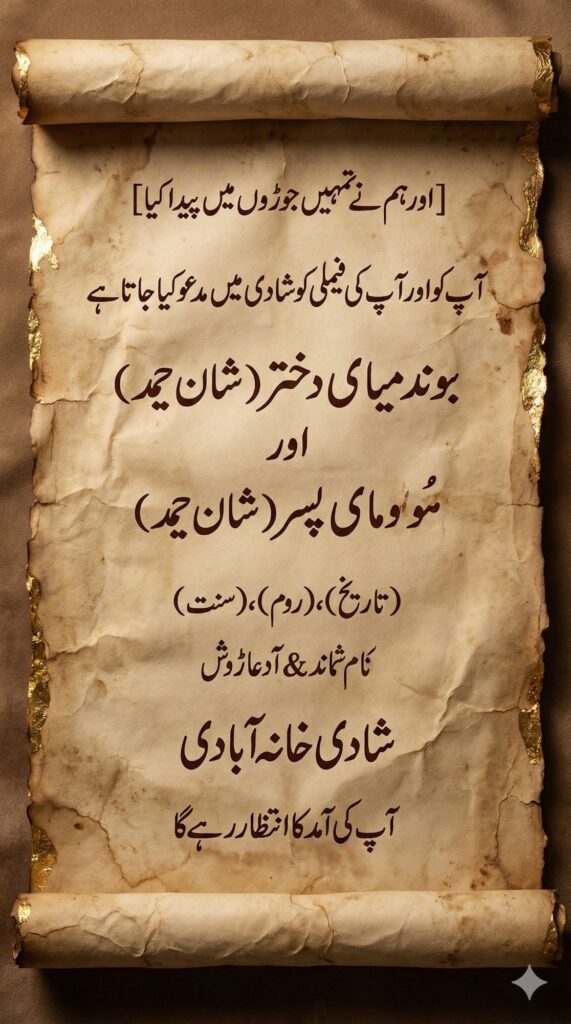 [اور ہم نے تمہیں جوڑوں میں پیدا کیا]
آپ کو اور آپ کی فیملی کو شادی میں مدعو کیا جاتا ہے
بوندمیای دختر (شان حمد)
اور
مُو ومای پسر (شان حمد)
(تاریخ)، (روم)، (سنت)
نام شماند & آدعا ژوش
شادی خانہ آبادی
آپ کی آمد کا انتظار رہے گا